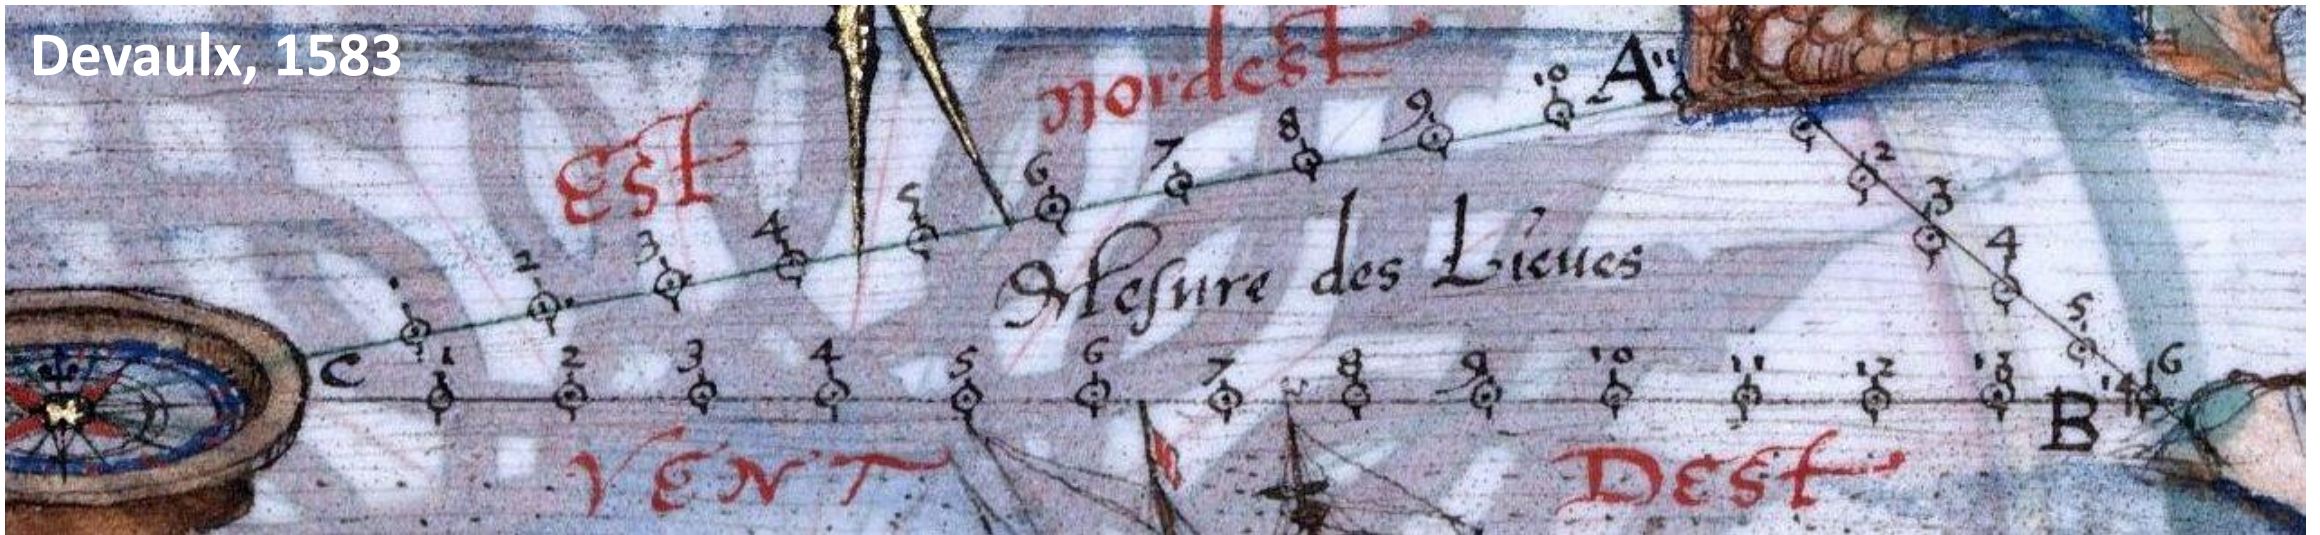 Devaulx, 1583
Est nordest
1 2 3 4 5 6 7 8 9 10 A 11
2 3 4 5 6
Mesure des Lieues
C 1 2 3 4 5 6 7 8 9 10 11 12 13 B 14
VENT DESt